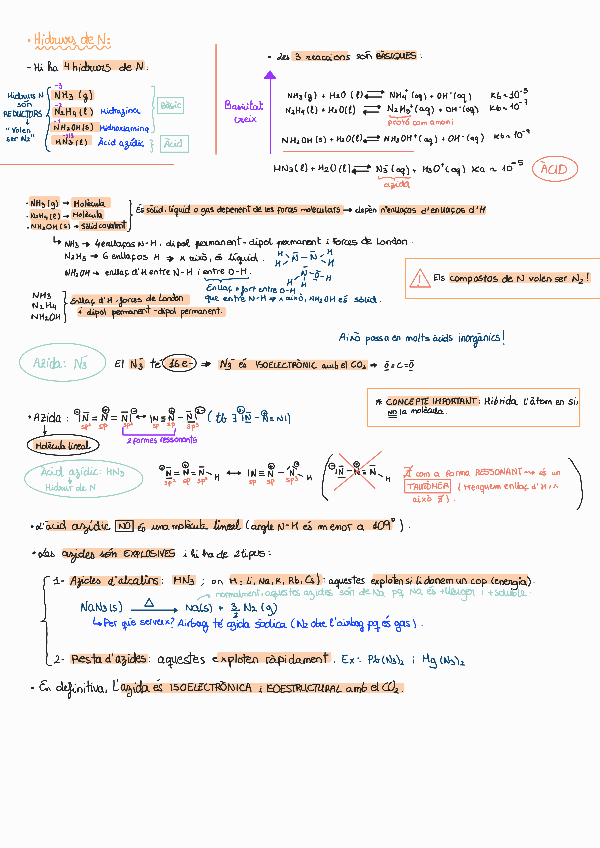 · Hidrurs de N:
- Hi ha 4 hidrurs de N.
Hidrurs N són REDUCTORS
↓
"Volen ser N2"
-3
NH3 (g)
-2
N2H4 (l) Hidrazina
-1
NH2OH (s) Hidroxiamina
-1/3
HN3 (l) Àcid azídic
Bàsic
Àcid
· Les 3 reaccions són BÀSIQUES:
Basicitat creix
NH3(g) + H2O (l) ⇌ NH4+ (aq) + OH-(aq) Kb ~ 10-5
N2H4(l) + H2O(l) ⇌ N2H5+ (aq) + OH-(aq) Kb ~ 10-7
protó com amoni
NH2OH (s) + H2O(l) ⇌ NH3OH+(aq) + OH-(aq) Kb ~ 10-9
HN3 (l) + H2O (l) ⇌ N3- (aq) + H3O+ (aq) Ka ~ 10-5
ÀCID
azida
· NH3(g) → Molècula
· N2H4(l) → Molècula
· NH2OH(s) → Sòlid covalent
És sòlid, líquid o gas depenent de les forces moleculars → depèn n'enllaços d'enllaços d'H
↳ NH3 → 4 enllaços N-H, dipol permanent-dipol permanent i Forces de London.
N2H4 → 6 enllaços H → x això, és líquid.
NH2OH → enllaç d'H entre N-H i entre O-H.
Enllaç + fort entre O-H
que entre N-H → x això, NH2OH és sòlid.
H H
N - N
H H
H
N - O - H
H
⚠ Els compostos de N volen ser N2!
NH3
N2H4
NH2OH
Enllaç d'H - forces de London
i dipol permanent-dipol permanent.
Això passa en molts àcids inorgànics!
Azida: N3-
El N3- té 16 e- → N3- és ISOELECTRÒNIC amb el CO2 → O=C=O
* CONCEPTE IMPORTANT: Hibrida l'àtom en si, NO la molècula.
· Azida: |N = N = N| ↔ |N ≡ N - N| (tb ∃ |N - N ≡ N|)
sp2 sp sp2 sp sp sp3
2 formes ressonants
Molècula lineal
Àcid azídic: HN3
↓
Hidrur de N
|N = N = N H ↔ |N ≡ N - N H
sp2 sp sp2 sp sp sp3
|N - N ≡ N H
∄ com a forma RESSONANT → és un
TAUTÒMER (trenquem enllaç d'H, x
això ∄).
· L'àcid azídic NO és una molècula lineal (angle N-H és menor a 109°).
· Les azides són EXPLOSIVES i hi ha de 2 tipus:
1- Azides d'alcalins: MN3; on M: Li, Na, K, Rb, Cs): aquestes exploten si li donem un cop (energia).
normalment, aquestes azides són de Na, pq Na és + lleuger i + soluble.
NaN3(s) △→ Na(s) + 3/2 N2 (g)
↳ Per què serveix? Airbag té azida sòdica (N2 obre l'airbag pq és gas).
2- Resta d'azides: aquestes exploten ràpidament. Ex: Pb(N3)2 i Hg(N3)2
· En definitiva, l'azida és ISOELECTRÒNICA i ISOESTRUCTURAL amb el CO2.